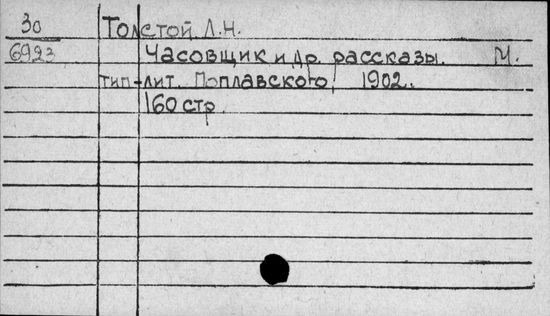 30 Толстой Л.Н.
6923 Часовщик и др. рассказы. М.
тип-лит. Поплавского, 1902.
160 стр.